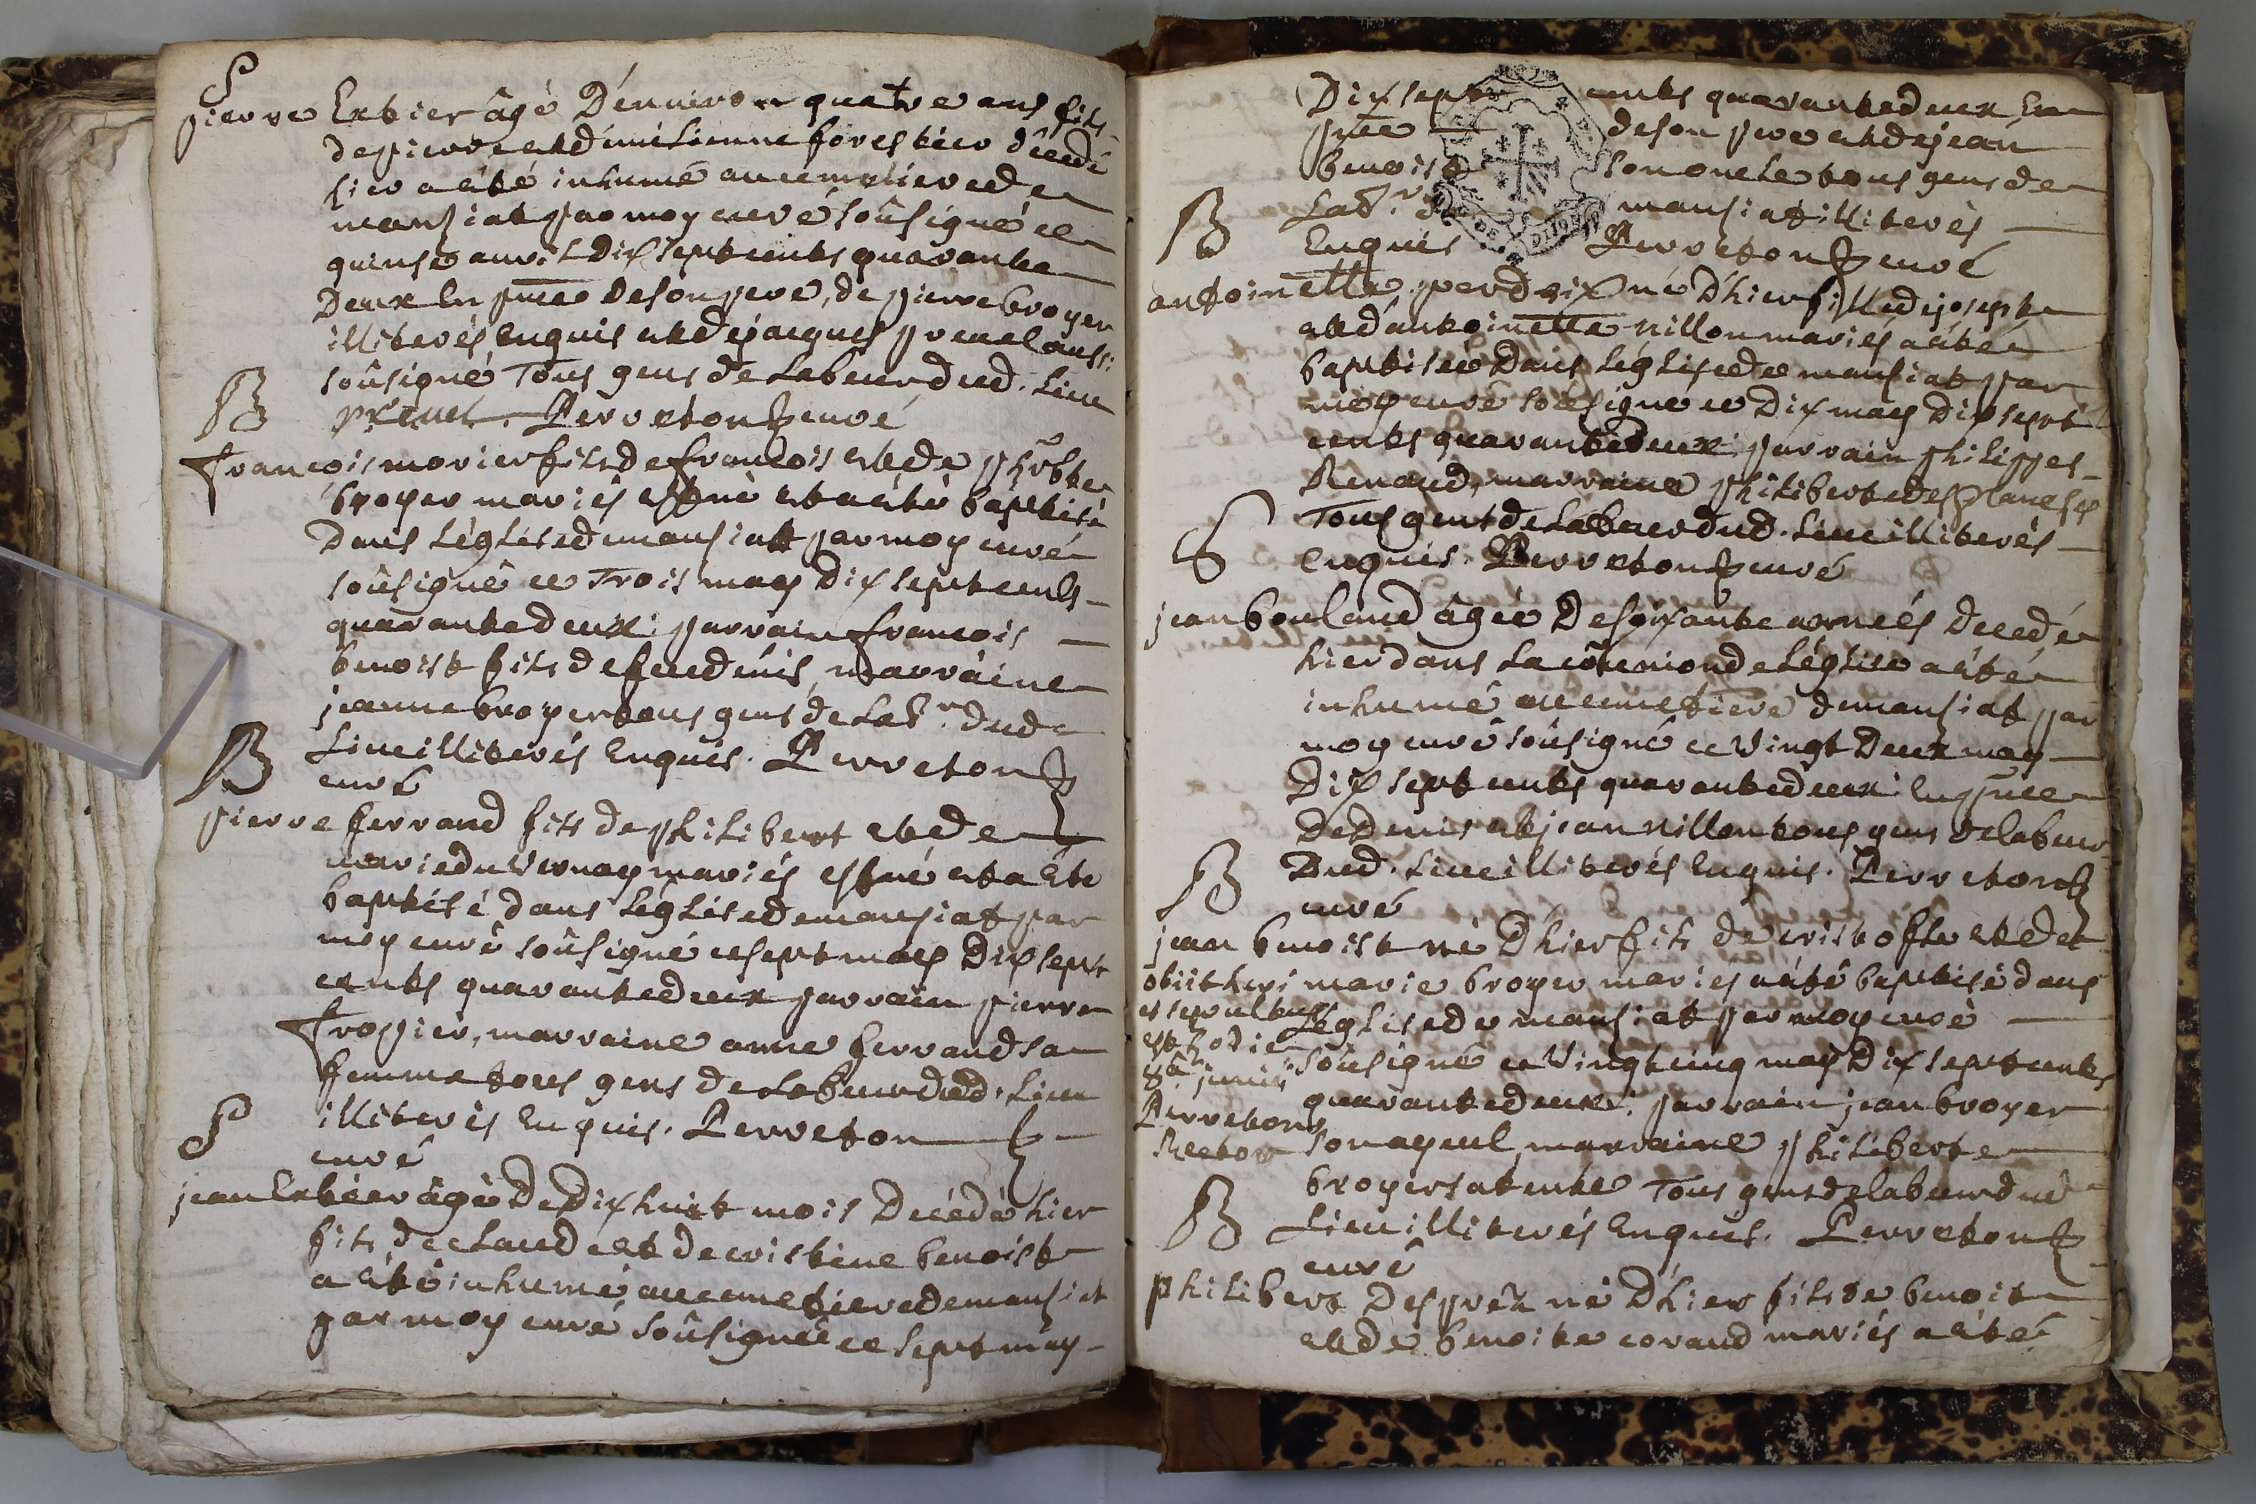 S
pierre Extier âgé D'enniron quatre ans fils
de pierre et d'émilienne forestier décédé
hier a été inhumé au cemetiere de
mansiat par moy curé soûsigné ce
quinse avril Dix sept cents quarante
Deux En pnce de son pere, de pierre broyer
illiterés Enquis et de jacques prenel aussi
soûsigné Tous gens de labeur dud. lieu
prenel Perreton curé
B
François morier fils de francois et de phibte
broyer mariés est né et a été baptisé
Dans l'église de mansiat par moy curé
soûsigné ce Trois may Dix sept cents
quarante deux: parrain francois
benoist fils de feu denis, marraine
jeanne broyer tous gens de labr. dud
Lieu illiterés Enquis. Perreton
curé
B
pierre ferrand fils de philibert et de
marie du Vernay mariés est né et a Été
baptisé dans l'église de mansiat par
moy curé soûsigné ce sept may Dix sept
cents quarante deux parrain pierre
froppier, marraine anne ferrand sa
femme tous gens de Labeur dud. Lieu
illiterés Enquis. Perreton
curé
S
jean Extier âgé De Dix huit mois Décédé hier
fils de claude et de cristine benoist
a été inhumé au cemetiere de mansiat
par moy curé soûsigné ce sept may
Dix sept cents quarante deux En
pnce de son pere et de jean
benoist son oncle tous gens de
Labr. de mansiat illiterés
Enquis Perreton curé
B
antoinette perdrix né D'hier fille de joseph
et d'antoinette nillon mariés a été
baptisée Dans l'église de mansiat par
moy curé soûsigné ce Dix may Dix sept
cents quarante deux: parrain philippes
Renaud, marraine philiberte desplanches
Tous gens de Labeur dud. Lieu illiterés
Enquis. Perreton curé
S
jean bouland âgée De soixante années Decedé
hier dans la côm̃union de l'église a été
inhumé au cemetiere de mansiat par
moy curé soûsigné ce Vingt Deux may
Dix sept cents quarante deux: En pnce
De Denis et jean nillon tous gens de labeur
Dud. Lieu illiterés Enquis. Perreton
curé
B
jean benoist né D'hier fils de cristofle et de
marie broyer mariés a été baptisé dans
L'église de mansiat par moy curé
soûsigné ce Vingt cinq may Dix sept cents
quarante deux: parrain jean broyer
son ayeul, marraine philiberte
broyer sa tente Tous gens de labeur dud
Lieu illiterés Enquis. Perreton
curé
obiit heri
et sepultus
est hodie
8a junii
Perreton
Rector
B
philibert Despréz né D'hier fils de benoit
et de benoite corand mariés a été